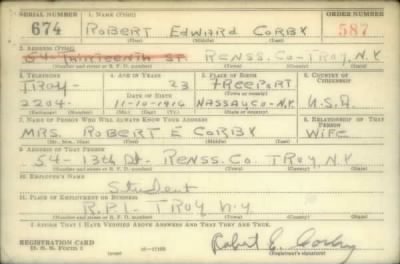 SERIAL NUMBER 1. NAME (Print) ORDER NUMBER
674 ROBERT EDWARD CORBY 587
(First) (Middle) (Last)
2. ADDRESS (Print)
54 THIRTEENTH ST RENSS. CO-TROY, N.Y.
(Number and street or R. F. D. number) (Town) (County) (State)
3. TELEPHONE 4. AGE IN YEARS 5. PLACE OF BIRTH 6. COUNTRY OF CITIZENSHIP
TROY- 23 FREEPORT
DATE OF BIRTH (Town or county)
2204- 11-10-1916 NASSAU CO-N.Y. U.S.A.
(Exchange) (Number) (Mo.) (Day) (Yr.) (State or country)
7. NAME OF PERSON WHO WILL ALWAYS KNOW YOUR ADDRESS 8. RELATIONSHIP OF THAT PERSON
MRS. ROBERT E CORBY WIFE
(Mr., Mrs., Miss) (First) (Middle) (Last)
9. ADDRESS OF THAT PERSON
54- 13th St. RENSS. CO. TROY, N.Y
(Number and street or R. F. D. number) (Town) (County) (State)
10. EMPLOYER'S NAME
Student
11. PLACE OF EMPLOYMENT OR BUSINESS
R.P.I- TROY N.Y
(Number and street or R. F. D. number) (Town) (County) (State)
I AFFIRM THAT I HAVE VERIFIED ABOVE ANSWERS AND THAT THEY ARE TRUE.
REGISTRATION CARD
D. S. S. FORM 1 16-17105 Robert E. Corby
(Registrant's signature)